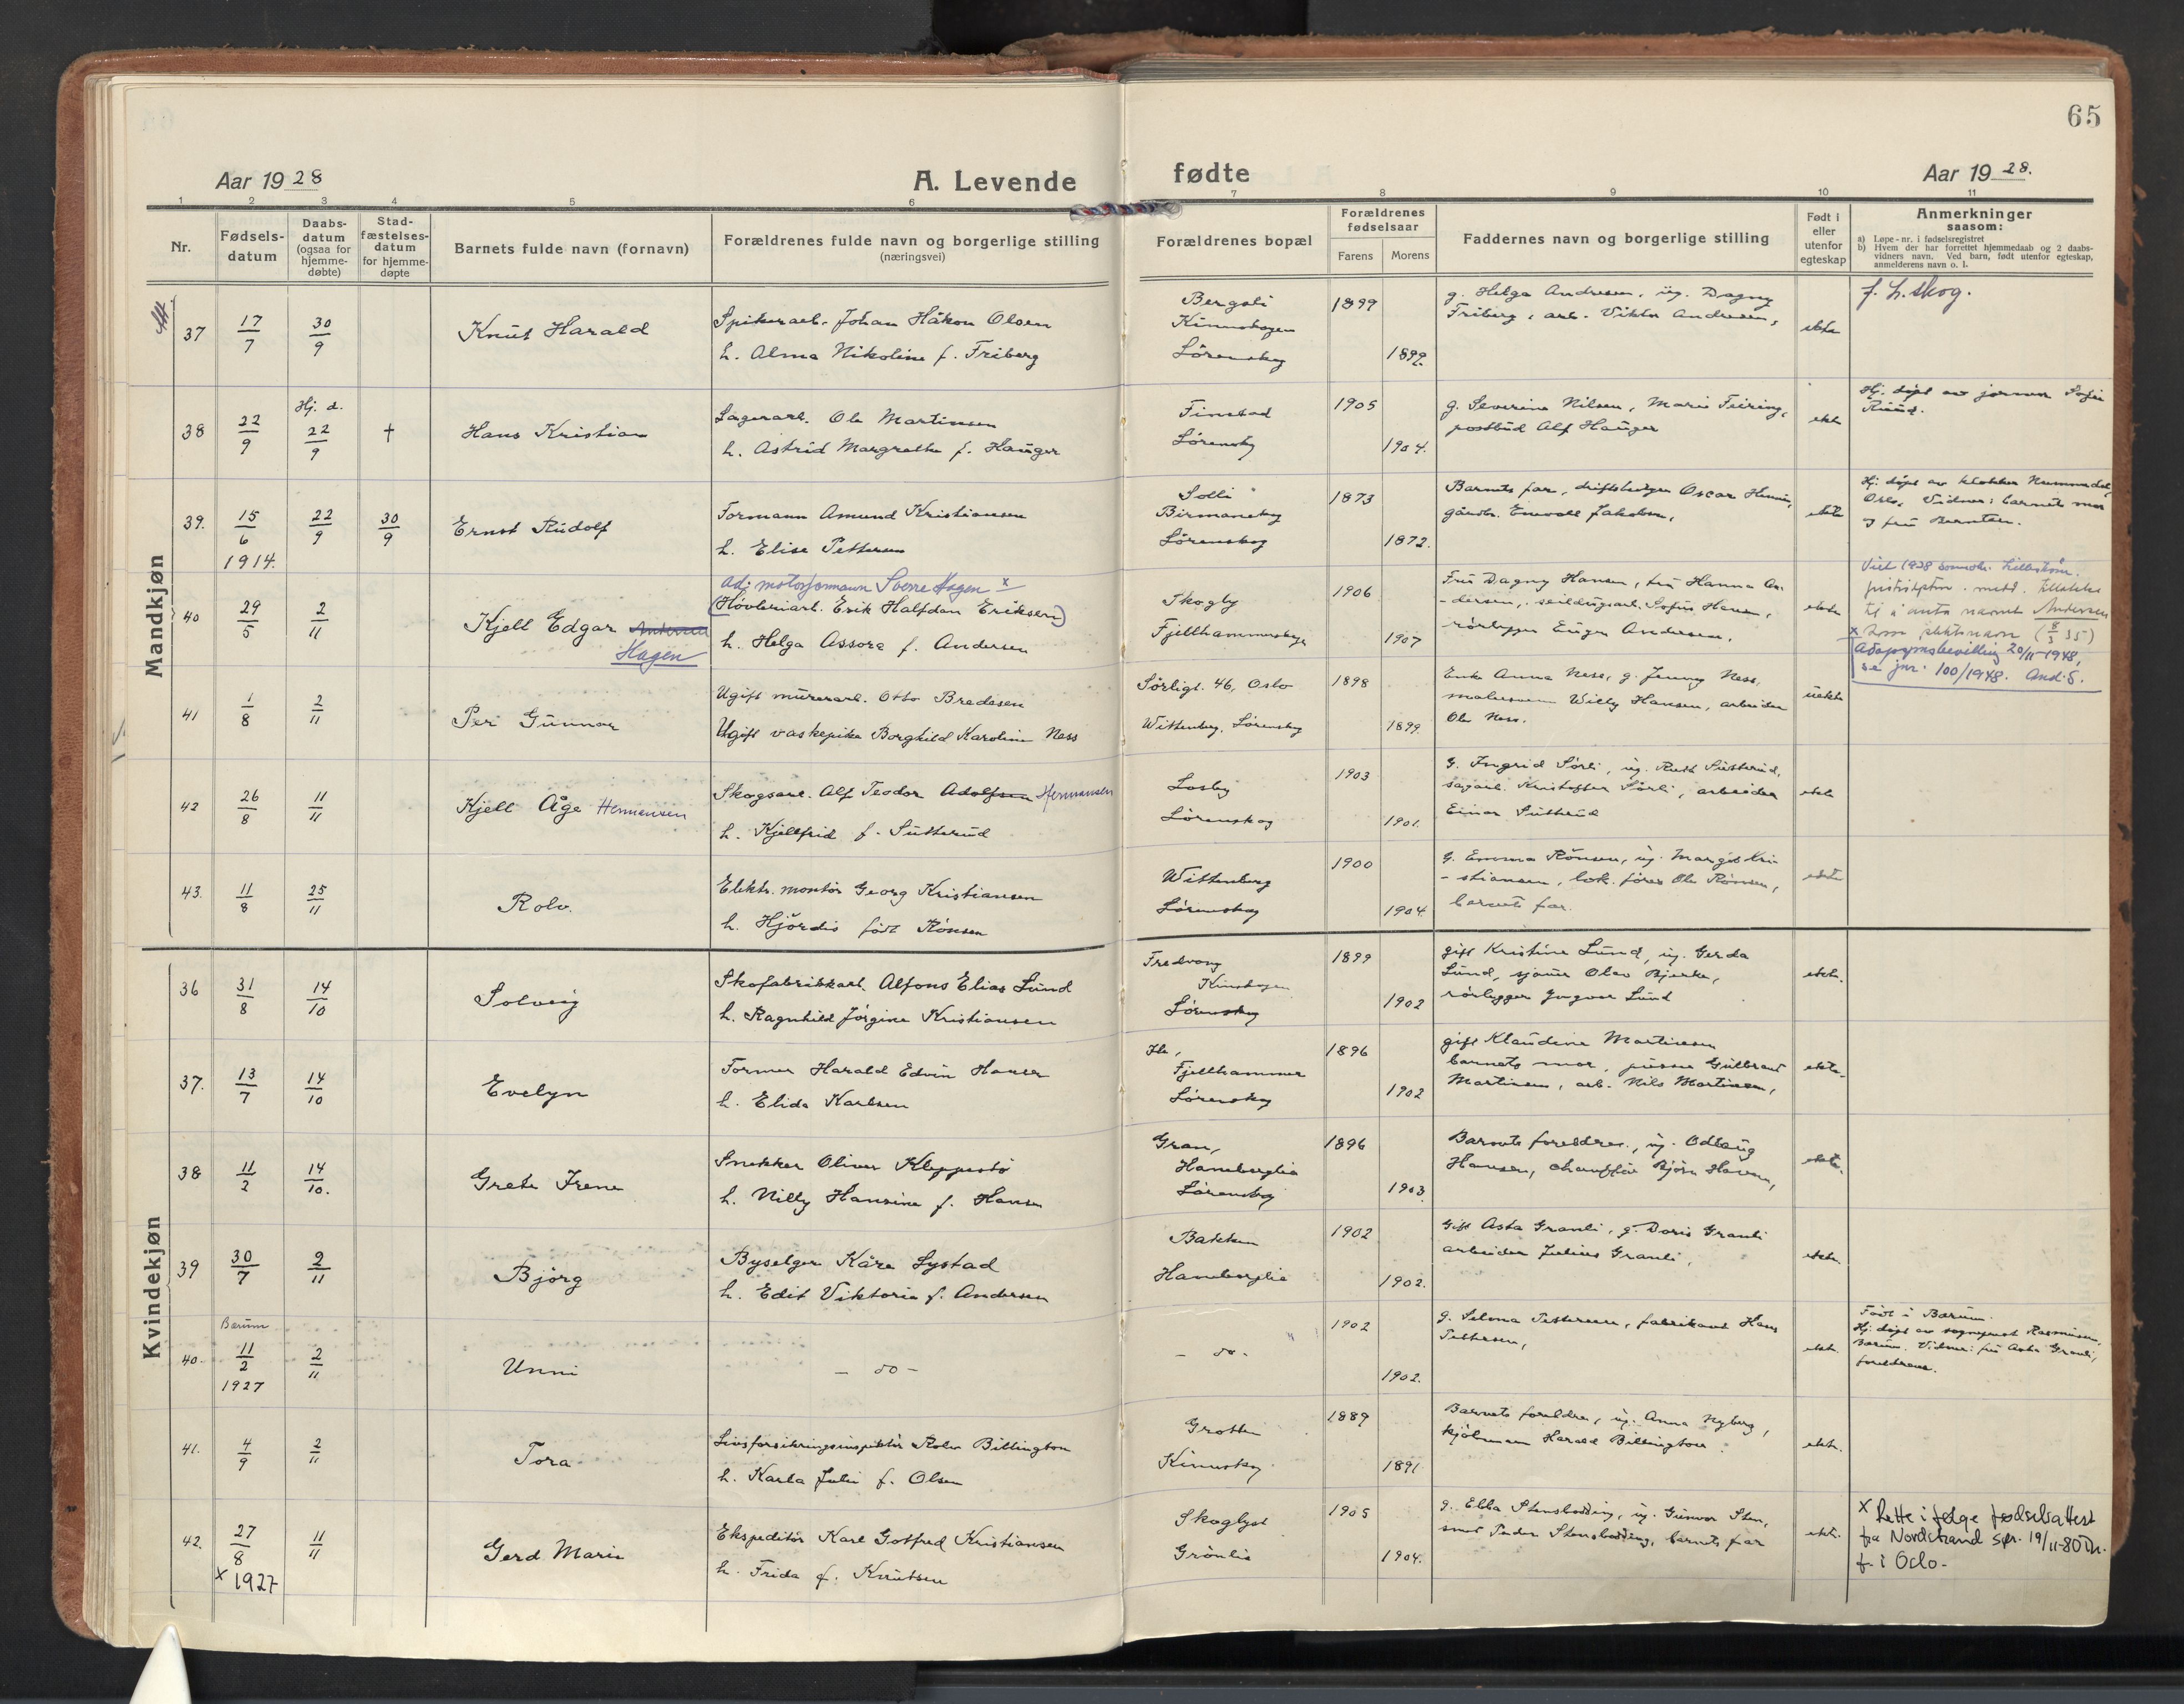 65
Aar 1928
A. Levende
fødte
Aar 1928.
1 2 3 4 5 6 7 8 9 10 11
Nr.
Fødsels-
datum
Daabs-
datum
(ogsaa for
hjemme-
døbte)
Stad-
fæstelses-
datum
for hjemme-
døpte
Barnets fulde navn (fornavn)
Forældrenes fulde navn og borgerlige stilling
(næringsvei)
Forældrenes bopæl
Forældrenes
fødselsaar
Farens Morens
Faddernes navn og borgerlige stilling
Født i
eller
utenfor
egteskap
Anmerkninger
saasom:
a) Løpe-nr. i fødselsregistret
b) Hvem der har forrettet hjemmedaab og 2 daabs-
vidners navn. Ved barn, født utenfor egteskap,
anmelderens navn o. l.
Mandkjøn
37 17/7 30/9 Knut Harald
Spikerarb. Johan Håkon Olsen
h. Alma Nikoline f. Friberg
Bergsli
Kinnskogen
Lörenskog
1899
1899.
g. Helga Andresen, ug. Dagny
Friberg, arb. Viktor Andresen,
ekte
f. L.skog.
38 22/9 Hj. d. 22/9 † Hans Kristian
Lagerarb. Ole Martinsen
h. Astrid Margrethe f. Hauger
Finstad
Lörenskog
1905
1904.
g. Severine Nilsen, Marie Feiring,
postbud Alf Hauger
ekte
Hj. døpt av jormor Sofie
Ruud.
39. 15/6 1914. 22/9 30/9 Ernst Rudolf
Formann Amund Kristiansen
h. Elise Pettersen
Solli
Birmanskog
Lörenskog
1873
1872.
Barnets far, driftsbestyrer Oscar Henning,
gårdbr. Enevold Jakobsen,
ekte
Hj. døpt av klokker Nummedal,
Oslo. Vidner: barnets mor
og fru Berntsen.
40 29/5 2/11 Kjell Edgar Andersen
Hagen
Adj. motorformann Sverre Hagen x
(Høvleriarb. Erik Halfdan Eriksen)
h. Helga Assora f. Andersen
Skogly
Fjellhammerskogen
1906
1907
Fru Dagny Hansen, fru Hanna An-
-dersen, seildugsarb. Sofus Hansen,
rörlegger Eugen Andersen.
ekte
ti å anta navnet Andersen
som slektsnavn (8/3 35)
x Adopsjonsbevilling 20/11-1948,
se jnr. 100/1948. And. S.
41 1/8 2/11 Per Gunnar
Ugift murerarb. Otto Bredesen
Ugift vaskepike Borghild Karoline Ness
Sörligt. 46, Oslo
Wittenberg, Lörenskog
1898
1899.
Enke Anna Ness, g. Jenny Ness,
malersvenn Willy Hansen, arbeider
Ole Ness.
uekte
42 26/8 11/11 Kjell Åge Hermansen
Skogsarb. Alf Teodor Adolfsen Hermansen
h. Kjellfrid f. Sutterud
Losby
Lörenskog
1903
1901.
G. Ingrid Sörli, ug. Ruth Sutterud,
sagarb. Kristoffer Sörli, arbeider
Einar Sutterud
ekte
43. 11/8 25/11 Rolv.
Elektr. montör Georg Kristiansen
h. Hjördis født Rönsen
Wittenberg
Lörenskog
1900
1904
G. Emma Rönsen, ug. Margit Kri-
-stiansen, lok. förer Ole Rönsen,
barnets far.
ekte
Kvindekjøn
36 31/8 14/10 Solveig
Skofabrikkarb. Alfons Elias Lund
h. Ragnhild Jörgine Kristiansen
Fredvang
Kinnskogen
Lörenskog
1899
1902
gift Kristine Lund, ug. Gerda
Lund, sjauer Olav Bjerke,
rörlegger Yngvar Lund
ekte.
37. 13/7 14/10 Evelyn
Former Harald Edvin Hansen
h. Elida Karlsen
Fjellhammer
Lörenskog
1896
1902
gift Klaudine Martinsen
barnets mor, pusser Gulbrand
Martinsen, arb. Nils Martinsen,
ekte.
38 11/2 14/10. Grete Irene
Snekker Oliver Kleppestö
h. Nilly Hansine f. Hansen
Gran,
Haneborglia
Lörenskog
1896
1903.
Barnets foreldre, ug. Odlaug
Hansen, chauffør Bjørn Hansen,
ekte.
39 30/7 2/11 Björg
Byselger Kåre Systad
h. Edit Viktoria f. Andersen
Bakken
Haneborglia
1902
1902.
Gift Asta Granli, g. Doris Granli
arbeider Julius Granli.
ekte.
40. Bærum 11/2 1927 2/11 Unni
— do —
— do -
1902
1902.
g. Selma Pettersen, fabrikant Hans
Pettersen,
ekte.
Født i Bærum.
Hj. døpt av sogneprest Rasmussen,
Bærum. Vidner: fru Asta Granli,
foreldrene.
41. 4/9 2/11 Tora
Livsforsikringsinspektör Rolv Billington
h. Karla Julie f. Olsen
Grotten
Kinnskog
1889
1891
Barnets foreldre, ug. Anna Nyberg,
kjöbmann Harald Billington.
ekte.
42. 27/8 x 1927 11/11 Gerd Marie
Ekspeditör Karl Gotfred Kristiansen
h. Frida f. Knutsen
Skoglyst
Grönlia
1905
1904.
g. Ebba Stensbødding, ug. Gunvor Sten,
smed Peder Stensbødding, barnets far
ekte.
x Rette i følge fødselsattest
fra Nordstrand spr. 19/11-80
f. i Oslo.